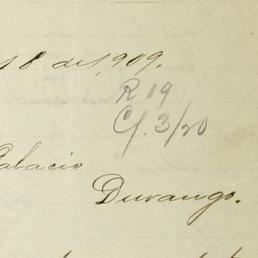 18 de 1,909.
R 19
Cf. 3/20
Palacio
Durango.